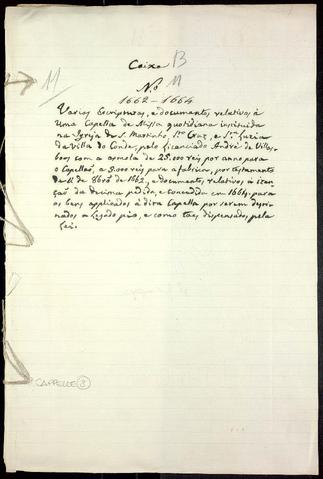 Caixa B
11
Nº 11
1662-1664
Varios Escripturas, e documentos, relativos á
uma Capella de Missa quotidiana instituida
na Igreja de S. Martinho, Stª Cruz, e Stª Luzia
da Villa do Conde, pelo licenciado André de Villas
boas com a esmola de 25.000 reis por anno para
o Capellão, e 9.000 reis para a fabrica, por testamento
de 11 de 8brº de 1662, e documentos, relativos, á izen-
ção da decima pedida, e concedida em 1664, para
os bens, applicados á dita Capella por serem desti-
nados a legado pio, e como taes, dispensados, pela
Lei.
CAPPELLE 3